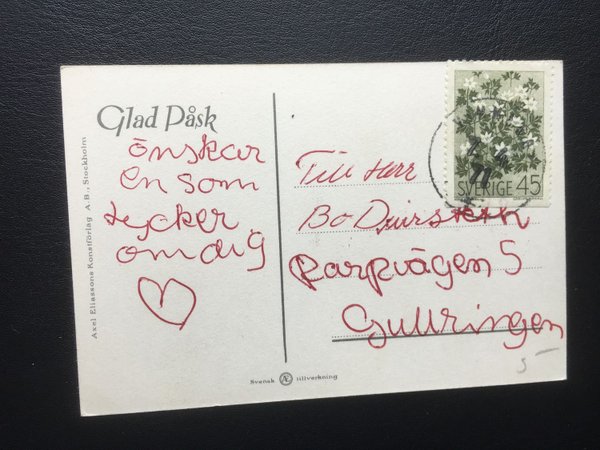 Glad Påsk
önskar
en som
tycker
om dig
Till Herr
Bo
Parpvägen 5
Gullringen
SVERIGE 45
Axel Eliassons Konstförlag A.B., Stockholm
Svensk Æ tillverkning